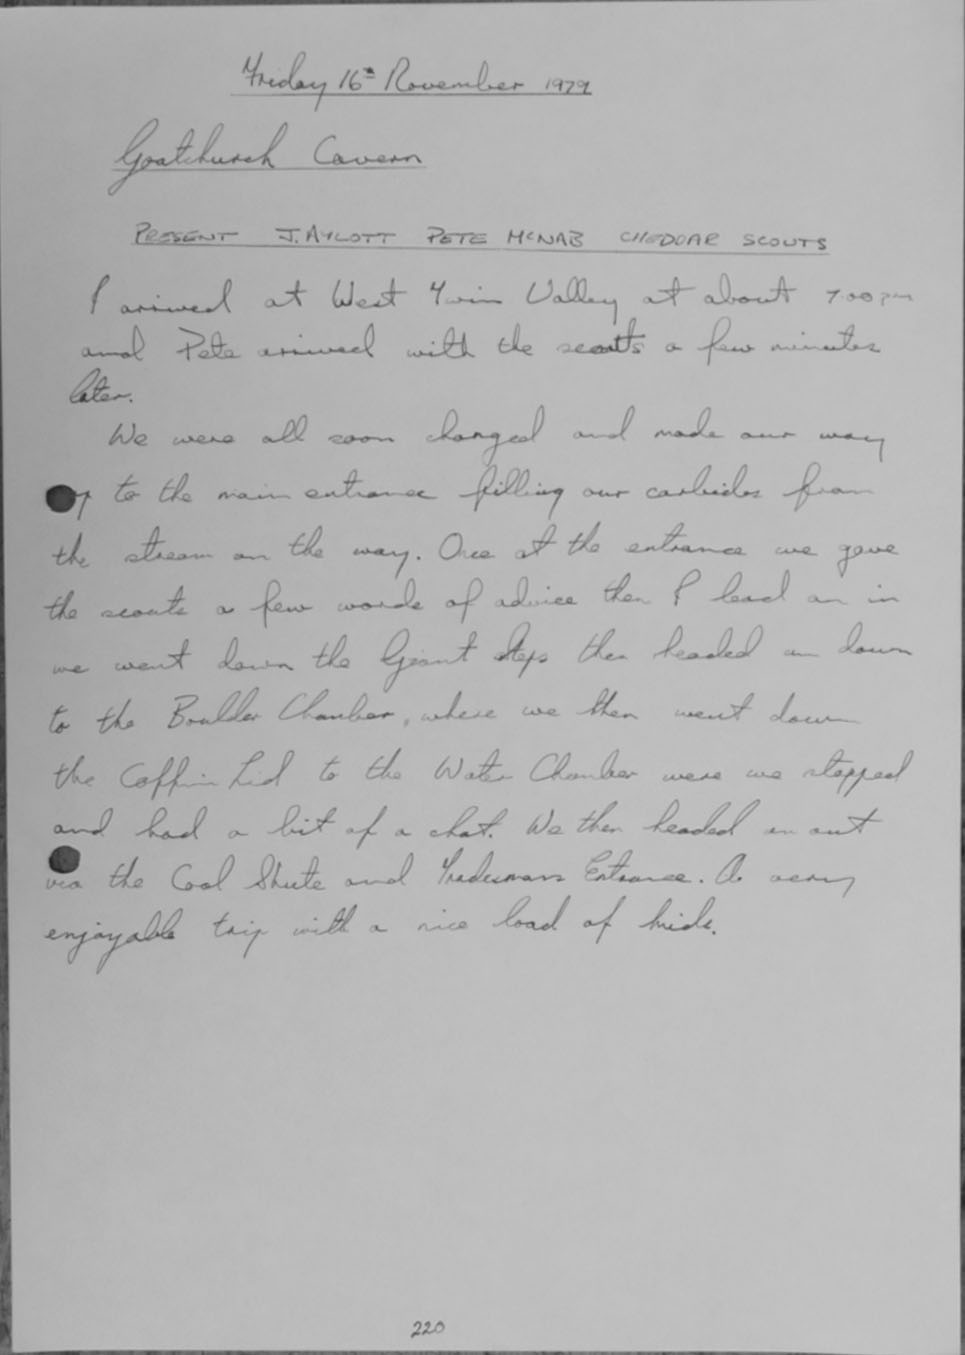 Friday 16th November 1979
Goatchurch Cavern
PRESENT J. AYLOTT PETE MCNAB CHEDDAR SCOUTS
I arrived at West Twin Valley at about 7.00pm
and Pete arrived with the scouts a few minutes
later.
We were all soon changed and made our way
up to the main entrance filling our carbides from
the stream on the way. Once at the entrance we gave
the scouts a few words of advice then I lead on in
we went down the Giant steps then headed on down
to the Boulder Chamber, where we then went down
the Coffin Lid to the Water Chamber were we stopped
and had a bit of a chat. We then headed on out
via the Coal Shute and Tradesmans Entrance. A very
enjoyable trip with a nice load of kids.
220